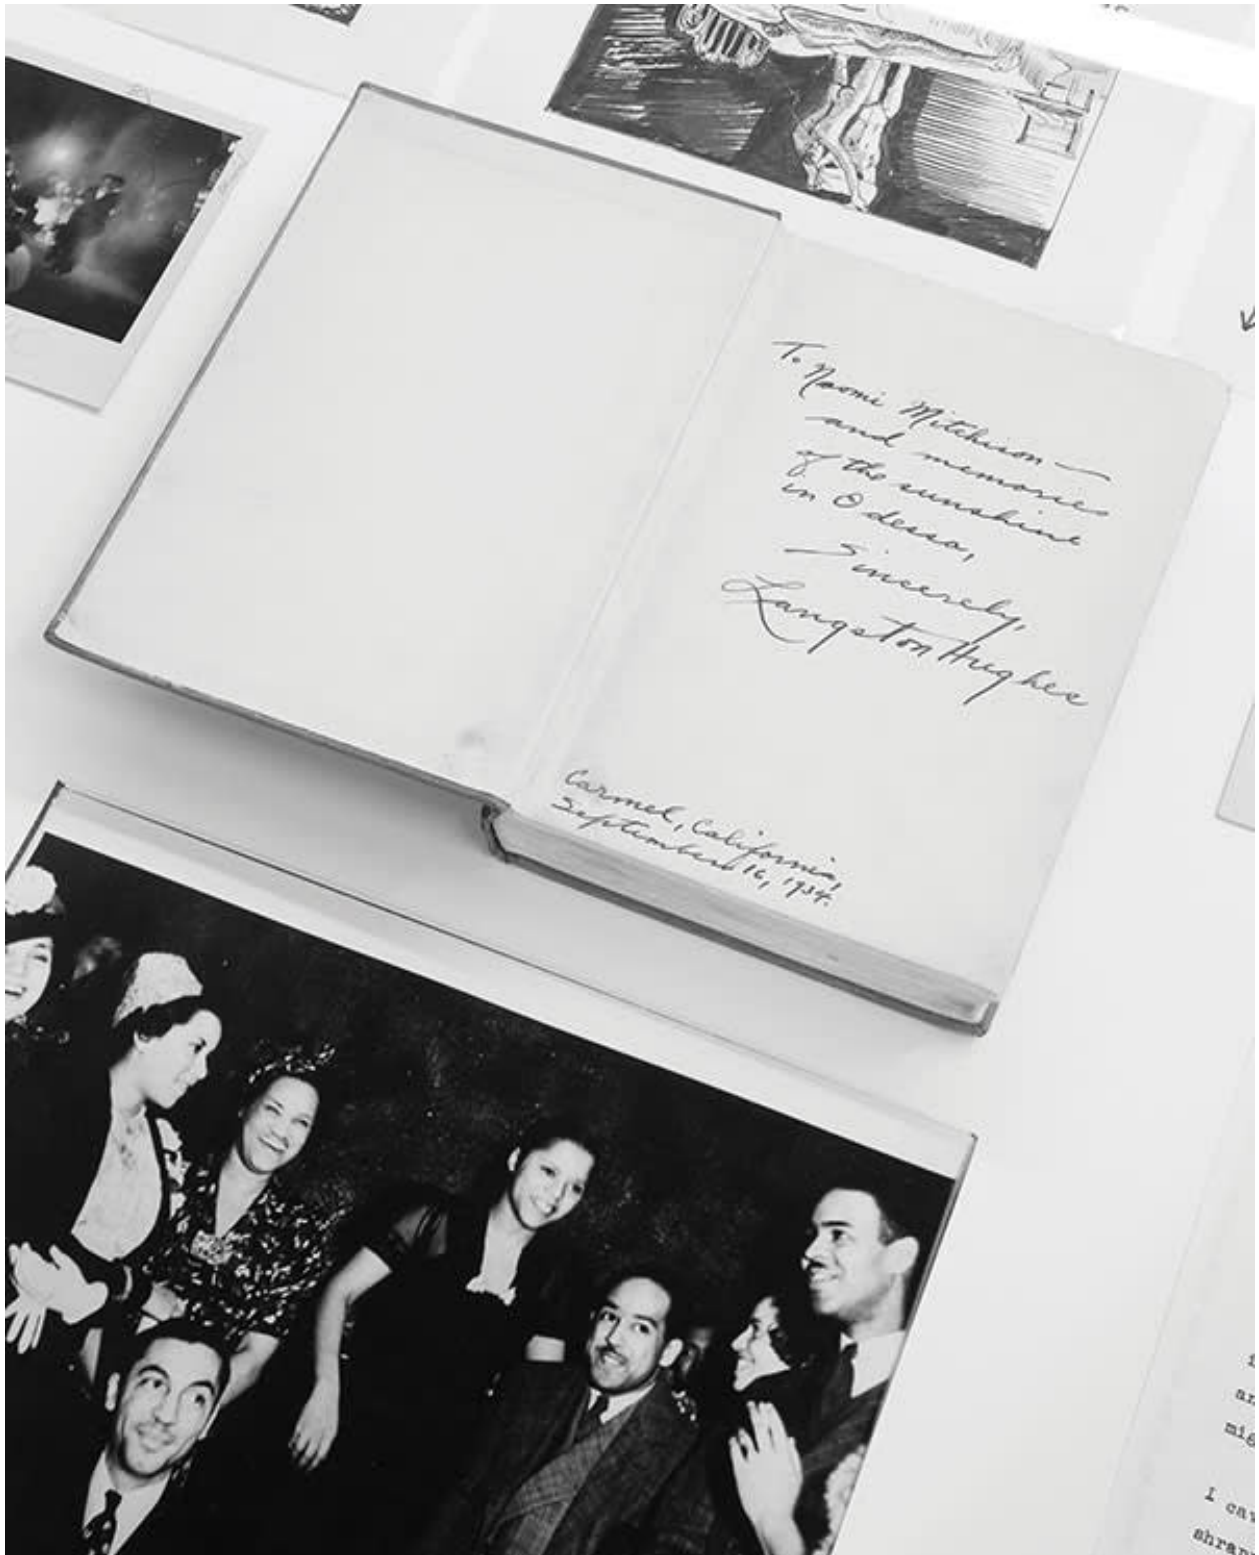 To Naomi Mitchison —
and memories
of the sunshine
in Odessa,
Sincerely,
Langston Hughes
Carmel, California,
September 16, 1934.
mig
I cav
shrap